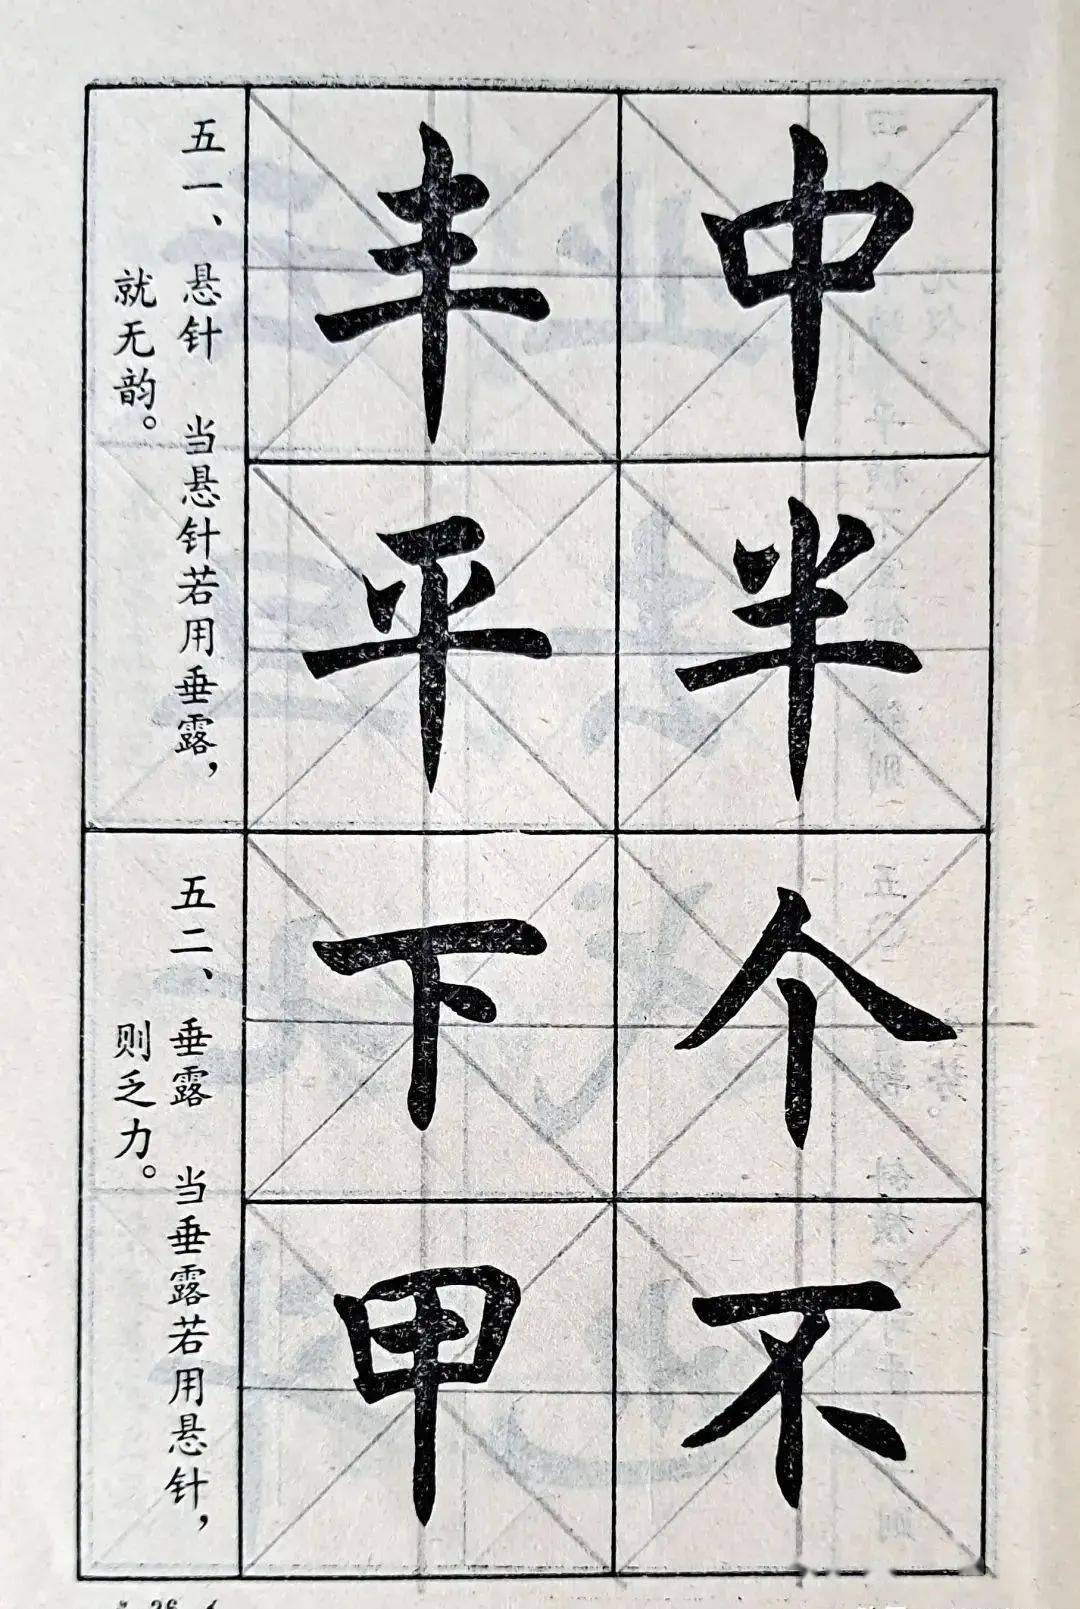 中
半
丰
平
五一、悬针 当悬针若用垂露，
就无韵。
个
不
下
甲
五二、垂露 当垂露若用悬针，
则乏力。